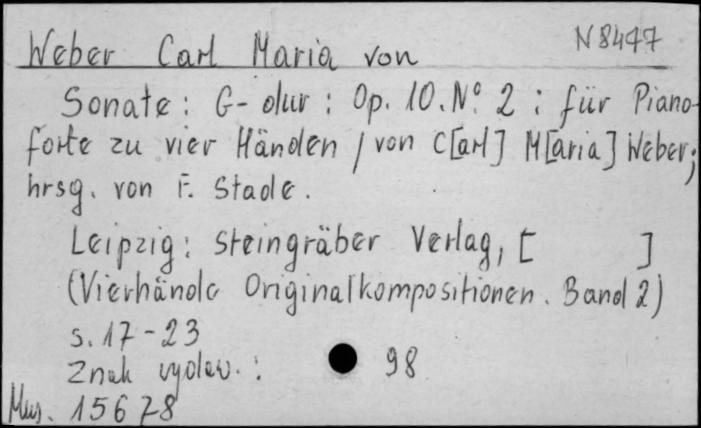 N 8447
Weber Carl Maria von
Sonate: G-dur: Op. 10. Nº 2: für Piano-
forte zu vier Händen / von C[arl] M[aria] Weber;
hrsg. von F. Stade.
Leipzig: Steingräber Verlag, [ ]
(Vierhände Originalkompositionen. Band 2)
s. 17-23
Znak wydaw.: 98
Mus. 15678